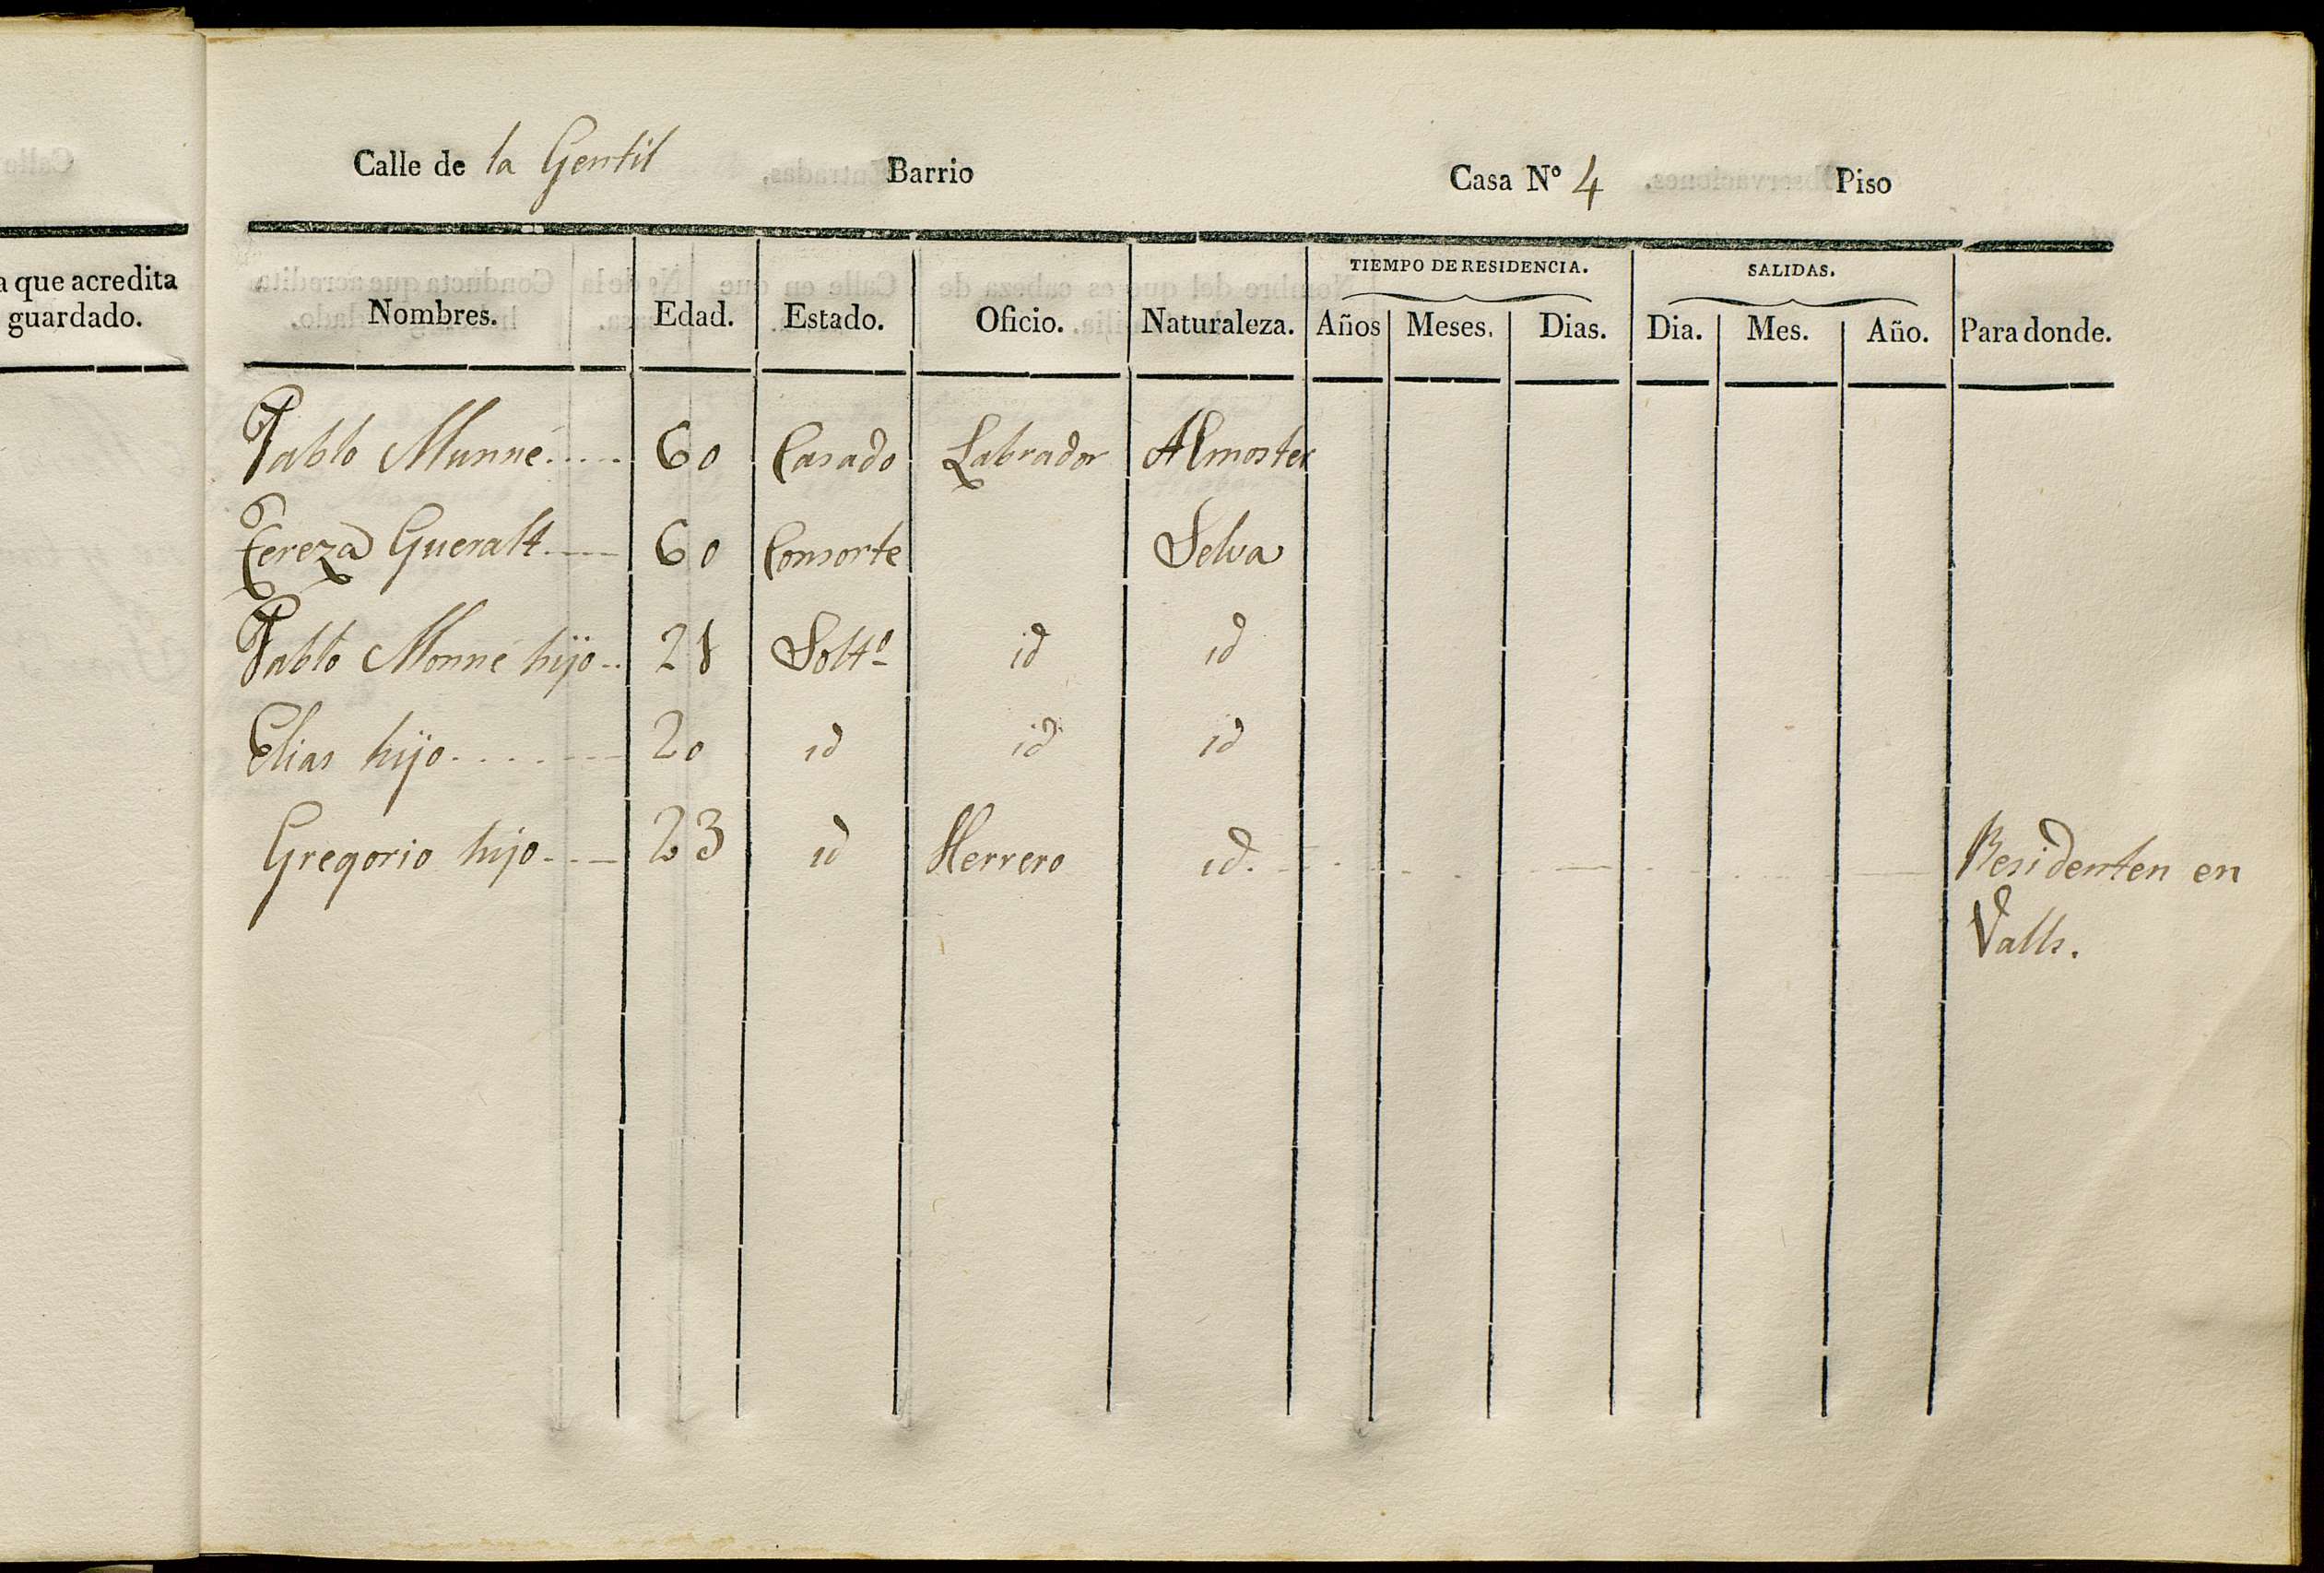 a que acredita
guardado.
Calle de la Gentil Barrio Casa Nº 4 Piso
TIEMPO DE RESIDENCIA. SALIDAS.
Nombres. Edad. Estado. Oficio. Naturaleza. Años Meses. Dias. Dia. Mes. Año. Para donde.
Pablo Munné..... 60 Casado Labrador Almoster
Tereza Gueralt.--- 60 Consorte Selva
Pablo Monné hijo.. Soltº id id
Elias hijo....... 20 id id id
Gregorio hijo.--- 23 id Herrero id. Residenten en
Valls.